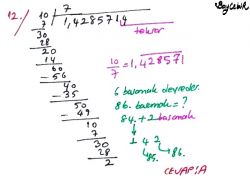 12./
10
7
7
1,4285714
tekrar
30
28
20
14
60
- 56
40
- 35
50
- 49
10
7
30
28
2
10/7 = 1,428571
6 basamak devreder.
86. basamak = ?
84 + 2 basamak
1 4 2
85. 86.
CEVAP: A